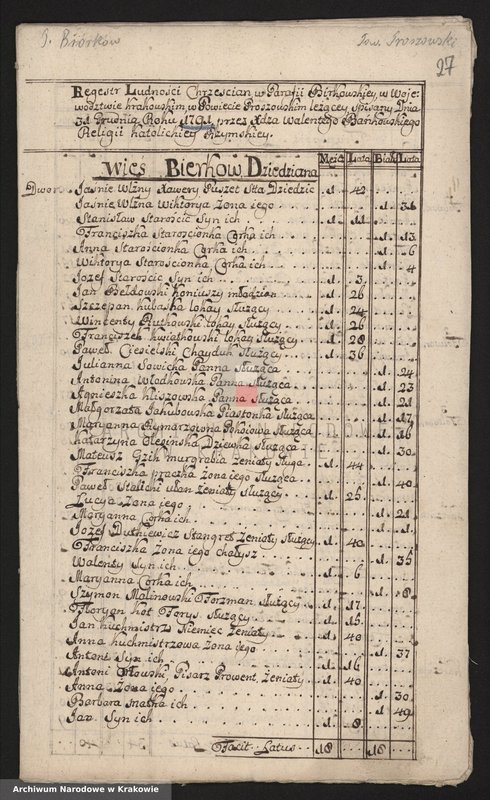 P. Biórków
Pow. Proszowski
27
Regestr Ludności Chrześcian, w Parafii Birkowskiey, w Woje-
wodztwie Krakowskim, w Powiecie Proszowskim leżącey spisany Dnia
31 Grudnia Roku 1791 przez Xdza Walentego Bańkowskiego
Religii katolickiey Rzymskiey.
Wieś Bierkow Dziedziczna Męsc Lata Biał Lata
Dwor Jaśnie Wlżny Xawery Puszet Stta Dziedzic .1. 42
Jaśnie Wlżna Wiktorya żona jego .1. 31
Stanisław Starościc Syn ich .1. 11
Franciszka Starościonka Corka ich .1. 13
Anna Starościonka Corka ich .1. 6
Wiktorya Starościonka Corka ich .1. 4
Jozef Starościc Syn ich .1. 3
Jan Bełdowski koniuszy młodzian .1. 26
Szczepan kubaska lokay służący .1. 24
Wincenty Rutkowski lokay służący .1. 26
Franciszek kwiatkowski lokay służący .1. 20
Paweł Ciesielski Chayduk służący .1. 36
Julianna Sowicka Panna służąca .1. 24
Antonina Włodkowska Panna służąca .1. 23
Agnieszka kliszowska Panna służąca .1. 21
Małgorzata Jakubowska Piastonka służąca .1. 17
Maryanna Rymarzgowa Pokoiowa służąca .1. 16
katarzyna Olegińska Dziewka służąca .1. 30
Mateusz Gzik murgrabia żeniaty sługa .1. 44
Franciszka praczka żona jego służąca .1. 40
Paweł Stalicki ułan żeniaty służący .1. 25
Lucya żona jego .1. 21
Maryanna Corka ich .1. 1
Jozef Dutkiewicz Stangret żeniaty służący .1. 40
Franciszka żona jego .1. 35
Walenty Syn ich .1. 6
Maryanna Corka ich .1. 8
Szymon Malinowski Forzman służący .1. 17
Floryan kot Forys służący .1. 15
Jan kuchmistrz Niemiec żeniaty .1. 40
Anna kuchmistrzowa żona jego .1. 37
Antoni Syn ich .1. 16
Antoni Orłowski, Pisarz Prowent, żeniaty .1. 40
Anna żona jego .1. 30
Barbara matka ich .1. 49
Jan Syn ich .1. 8
Facit Latus 18 18
Archiwum Narodowe w Krakowie